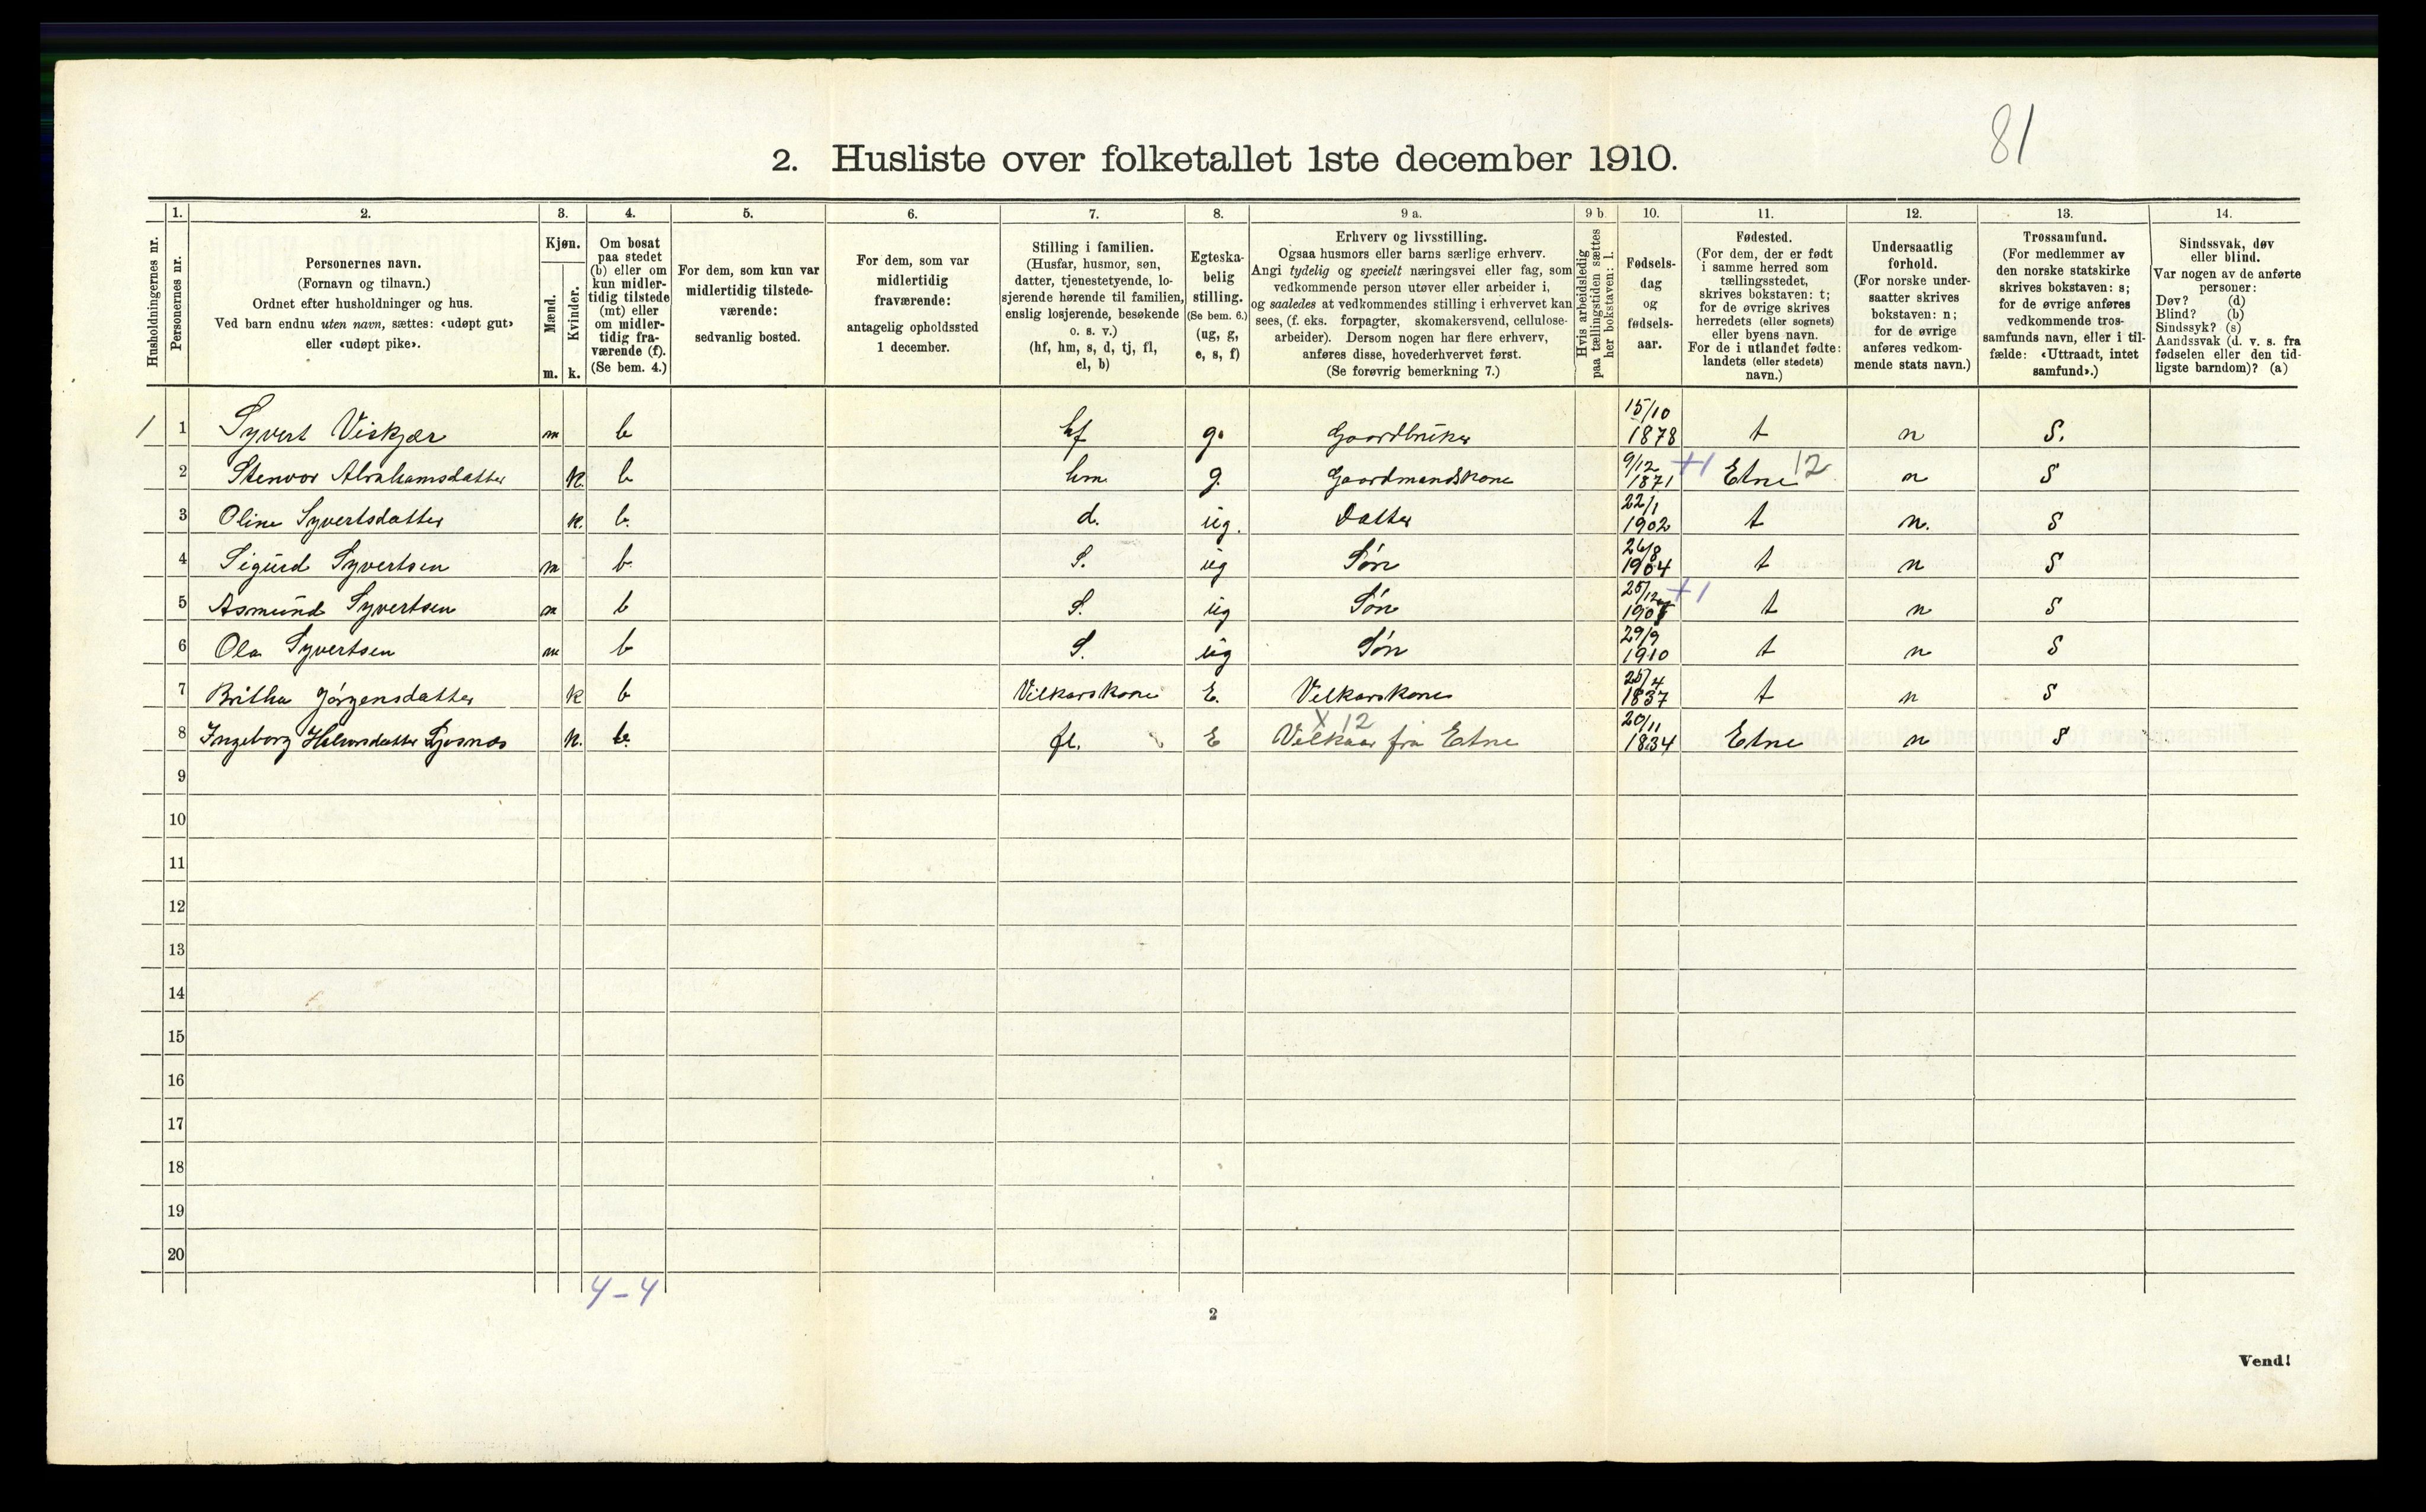 81
2. Husliste over folketallet 1ste december 1910.
1. 2. 3. 4. 5. 6. 7. 8. 9 a. 9 b. 10. 11. 12. 13. 14.
Husholdningernes nr.
Personernes nr.
Personernes navn.
(Fornavn og tilnavn.)
Ordnet efter husholdninger og hus.
Ved barn endnu uten navn, sættes: «udøpt gut»
eller «udøpt pike».
Kjøn.
Mænd.
Kvinder.
m. k.
Om bosat
paa stedet
(b) eller om
kun midler-
tidig tilstede
(mt) eller
om midler-
tidig fra-
værende (f).
(Se bem. 4.)
For dem, som kun var
midlertidig tilstede-
værende:
sedvanlig bosted.
For dem, som var
midlertidig
fraværende:
antagelig opholdssted
1 december.
Stilling i familien.
(Husfar, husmor, søn,
datter, tjenestetyende, lo-
sjerende hørende til familien,
enslig losjerende, besøkende
o. s. v.)
(hf, hm, s, d, tj, fl,
el, b)
Egteska-
belig
stilling.
(Se bem. 6.)
(ug, g,
e, s, f)
Erhverv og livsstilling.
Ogsaa husmors eller barns særlige erhverv.
Angi tydelig og specielt næringsvei eller fag, som
vedkommende person utøver eller arbeider i,
og saaledes at vedkommendes stilling i erhvervet kan
sees, (f. eks. forpagter, skomakersvend, cellulose-
arbeider). Dersom nogen har flere erhverv,
anføres disse, hovederhvervet først.
(Se forøvrig bemerkning 7.)
Hvis arbeidsledig
paa tællingstiden sættes
her bokstaven: l.
Fødsels-
dag
og
fødsels-
aar.
Fødested.
(For dem, der er født
i samme herred som
tællingsstedet,
skrives bokstaven: t;
for de øvrige skrives
herredets (eller sognets)
eller byens navn.
For de i utlandet fødte:
landets (eller stedets)
navn.)
Undersaatlig
forhold.
(For norske under-
saatter skrives
bokstaven: n;
for de øvrige
anføres vedkom-
mende stats navn.)
Trossamfund.
(For medlemmer av
den norske statskirke
skrives bokstaven: s;
for de øvrige anføres
vedkommende tros-
samfunds navn, eller i til-
fælde: «Uttraadt, intet
samfund».)
Sindssvak, døv
eller blind.
Var nogen av de anførte
personer:
Døv? (d)
Blind? (b)
Sindssyk? (s)
Aandssvak (d. v. s. fra
fødselen eller den tid-
ligste barndom)? (a)
1 1 Syvert Viskjær m b hf g. Gaardbruker 15/10 1878 t n S.
2 Stenvor Abrahamsdatter k. b hm g. Gaardmandskone 9/12 1871 +1 Etne 12 n S
3 Oline Syvertsdatter k. b. d. ug. Datter 22/1 1902 t n. S
4 Sigurd Syvertsen m b S. ug Søn 26/8 1904 t n S
5 Asmund Syvertsen m b S. ug Søn 25/12 +1 t n S
6 Ola Syvertsen m b S. ug Søn 29/9 1910 t n S
7 Britha Jørgensdatter k b Vilkarskone E. Velkarskone 25/4 1837 t n S
8 Ingeborg Halvorsdatter k. b. fl. E X 12 Velkaar fra Etne 20/11 1834 Etne n S
9
10
11
12
13
14
15
16
17
18
19
20
4-4
2
Vend!